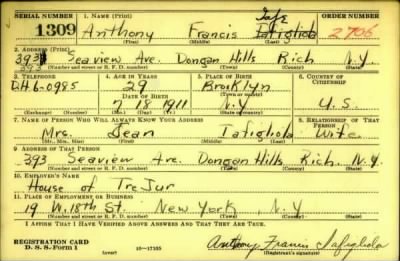 SERIAL NUMBER 1. NAME (Print) ORDER NUMBER
1309 Anthony Francis Iafigliola 2706
(First) (Middle) (Last)
2. ADDRESS (Print)
393 Seaview Ave. Dongan Hills Rich N.Y.
(Number and street or R. F. D. number) (Town) (County) (State)
3. TELEPHONE 4. AGE IN YEARS 5. PLACE OF BIRTH 6. COUNTRY OF CITIZENSHIP
DH6-0985 29 Brooklyn
DATE OF BIRTH (Town or county)
7 18 1911 N.Y U.S.
(Exchange) (Number) (Mo.) (Day) (Yr.) (State or country)
7. NAME OF PERSON WHO WILL ALWAYS KNOW YOUR ADDRESS 8. RELATIONSHIP OF THAT PERSON
Mrs. Jean Wife
(Mr., Mrs., Miss) (First) (Middle) (Last)
9. ADDRESS OF THAT PERSON
393 Seaview Ave. Dongan Hills, Rich. N.Y.
(Number and street or R. F. D. number) (Town) (County) (State)
10. EMPLOYER'S NAME
House of TreJur
11. PLACE OF EMPLOYMENT OR BUSINESS
19 W. 18th St. New York, N.Y
(Number and street or R. F. D. number) (Town) (County) (State)
I AFFIRM THAT I HAVE VERIFIED ABOVE ANSWERS AND THAT THEY ARE TRUE.
REGISTRATION CARD
D. S. S. Form 1 (over) 16-17105 (Registrant's signature)
Anthony Francis